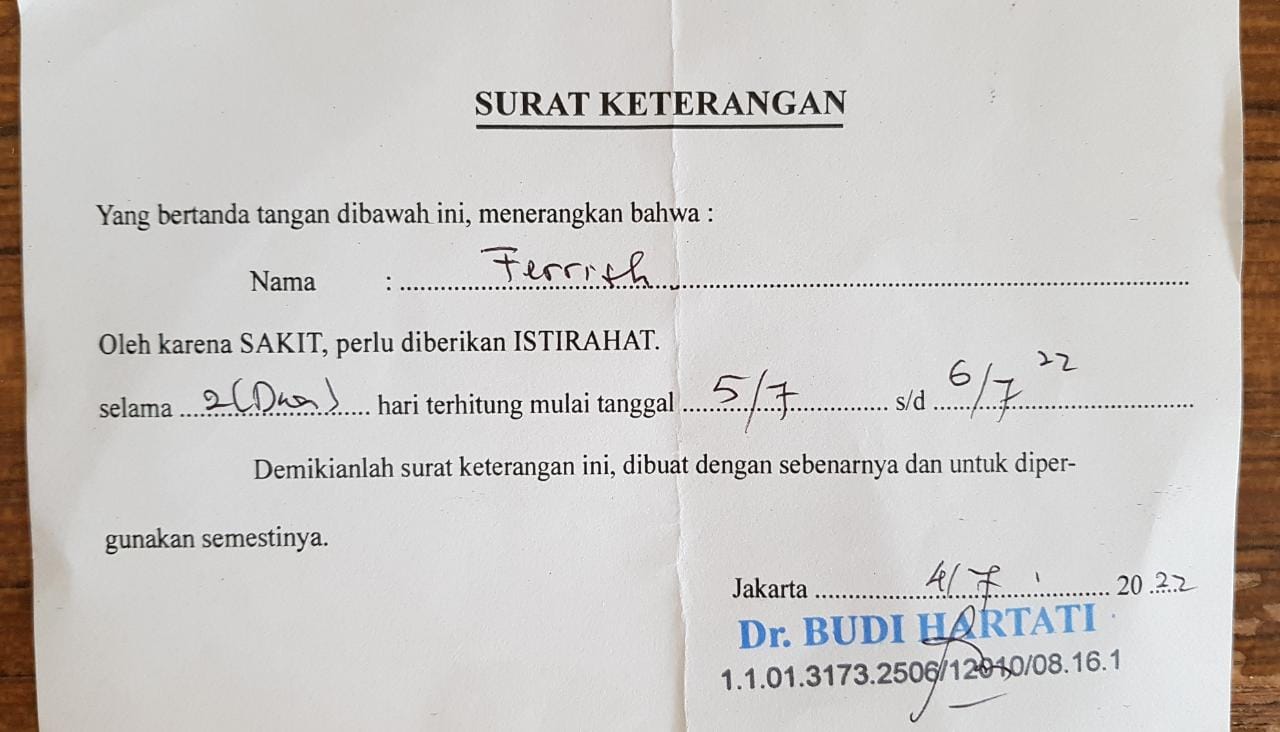 SURAT KETERANGAN
Yang bertanda tangan dibawah ini, menerangkan bahwa :
Nama : Ferrish
Oleh karena SAKIT, perlu diberikan ISTIRAHAT.
selama 2 (Dua) hari terhitung mulai tanggal 5/7 s/d 6/7 22
Demikianlah surat keterangan ini, dibuat dengan sebenarnya dan untuk diper-
gunakan semestinya.
Jakarta 4/7 2022
Dr. BUDI HARTATI
1.1.01.3173.2506/12010/08.16.1